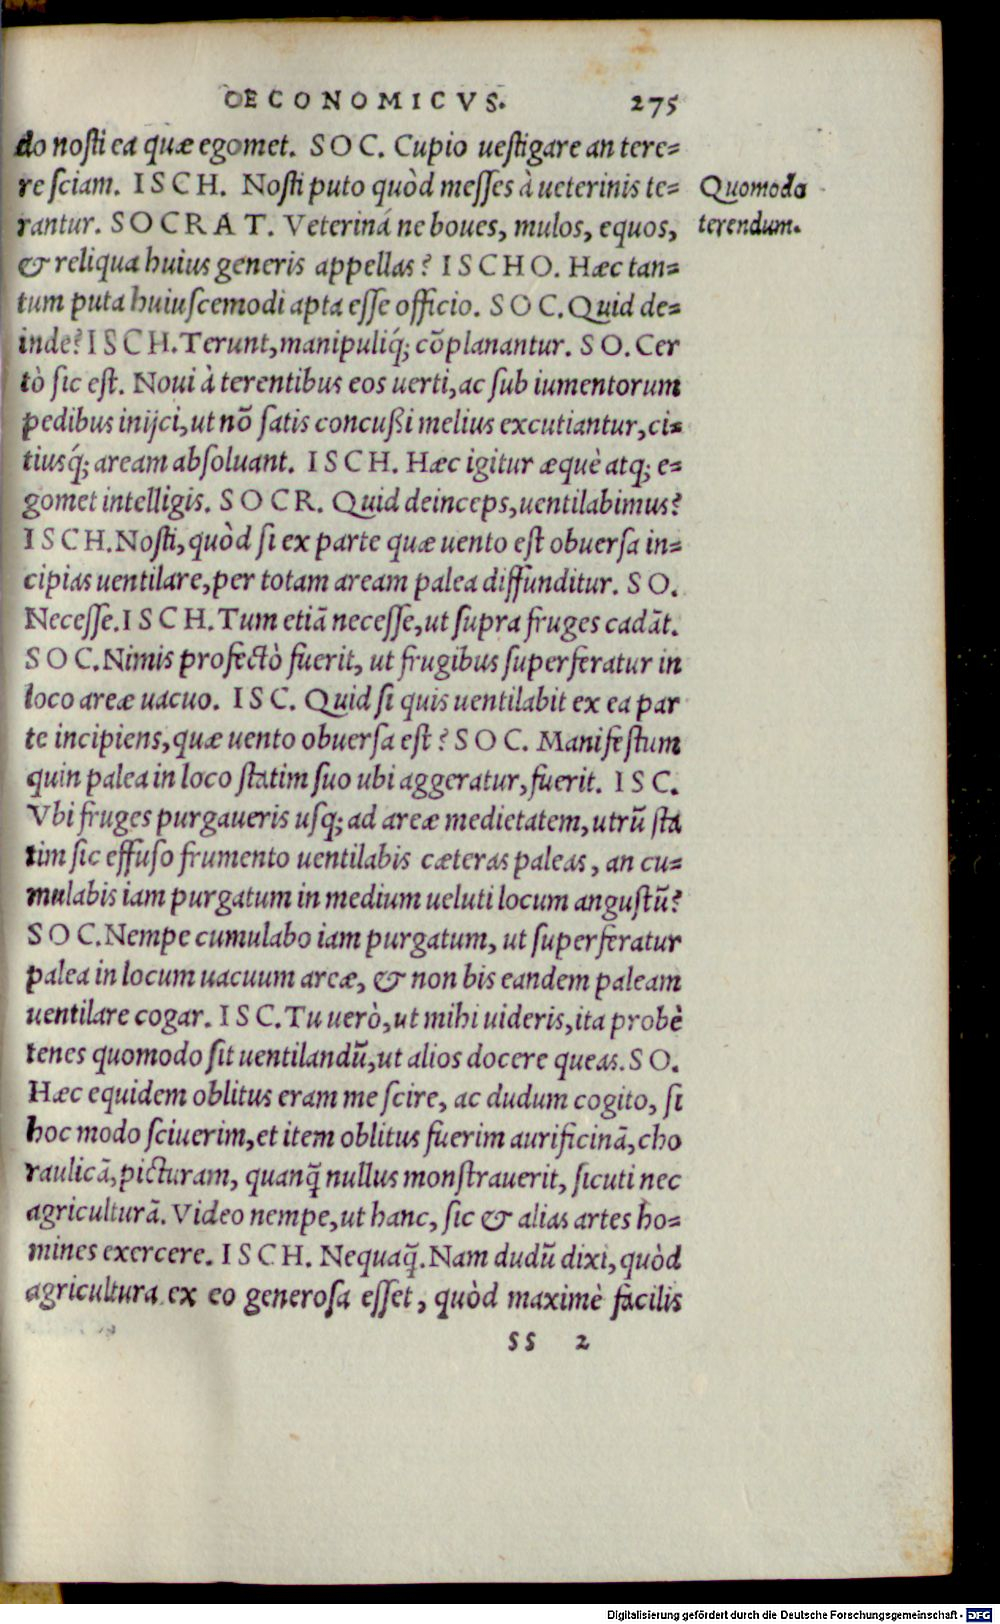 OECONOMICVS. 275
do nosti ea quæ egomet. SOC. Cupio uestigare an tere=
re sciam. ISCH. Nosti puto quòd messes à ueterinis te=
rantur. SOCRAT. Veteriná ne boues, mulos, equos,
& reliqua huius generis appellas? ISCHO. Hæc tan=
tum puta huiuscemodi apta esse officio. SOC. Quid de=
inde? ISCH. Terunt, manipuliq́; cōplanantur. SO. Cer
tò sic est. Noui à terentibus eos uerti, ac sub iumentorum
pedibus inijci, ut nō satis concußi melius excutiantur, ci=
tiusq́; aream absoluant. ISCH. Hæc igitur æquè atq; e=
gomet intelligis. SOCR. Quid deinceps, uentilabimus?
ISCH. Nosti, quòd si ex parte quæ uento est obuersa in=
cipias uentilare, per totam aream palea diffunditur. SO.
Necesse. ISCH. Tum etiā necesse, ut supra fruges cadāt.
SOC. Nimis profectò fuerit, ut frugibus superferatur in
loco areæ uacuo. ISC. Quid si quis uentilabit ex ea par
te incipiens, quæ uento obuersa est? SOC. Manifestum
quin palea in loco statim suo ubi aggeratur, fuerit. ISC.
Vbi fruges purgaueris usq; ad areæ medietatem, utrū sta
tim sic effuso frumento uentilabis cæteras paleas, an cu=
mulabis iam purgatum in medium ueluti locum angustū?
SOC. Nempe cumulabo iam purgatum, ut superferatur
palea in locum uacuum areæ, & non bis eandem paleam
uentilare cogar. ISC. Tu uerò, ut mihi uideris, ita probè
tenes quomodo sit uentilandū, ut alios docere queas. SO.
Hæc equidem oblitus eram me scire, ac dudum cogito, si
hoc modo sciuerim, et item oblitus fuerim aurificinā, cho
raulicā, picturam, quanq̄ nullus monstrauerit, sicuti nec
agriculturā. Video nempe, ut hanc, sic & alias artes ho=
mines exercere. ISCH. Nequaq̄. Nam dudū dixi, quòd
agricultura ex eo generosa esset, quòd maximè facilis
SS 2
Quomodo
terendum.
Digitalisierung gefördert durch die Deutsche Forschungsgemeinschaft - DFG